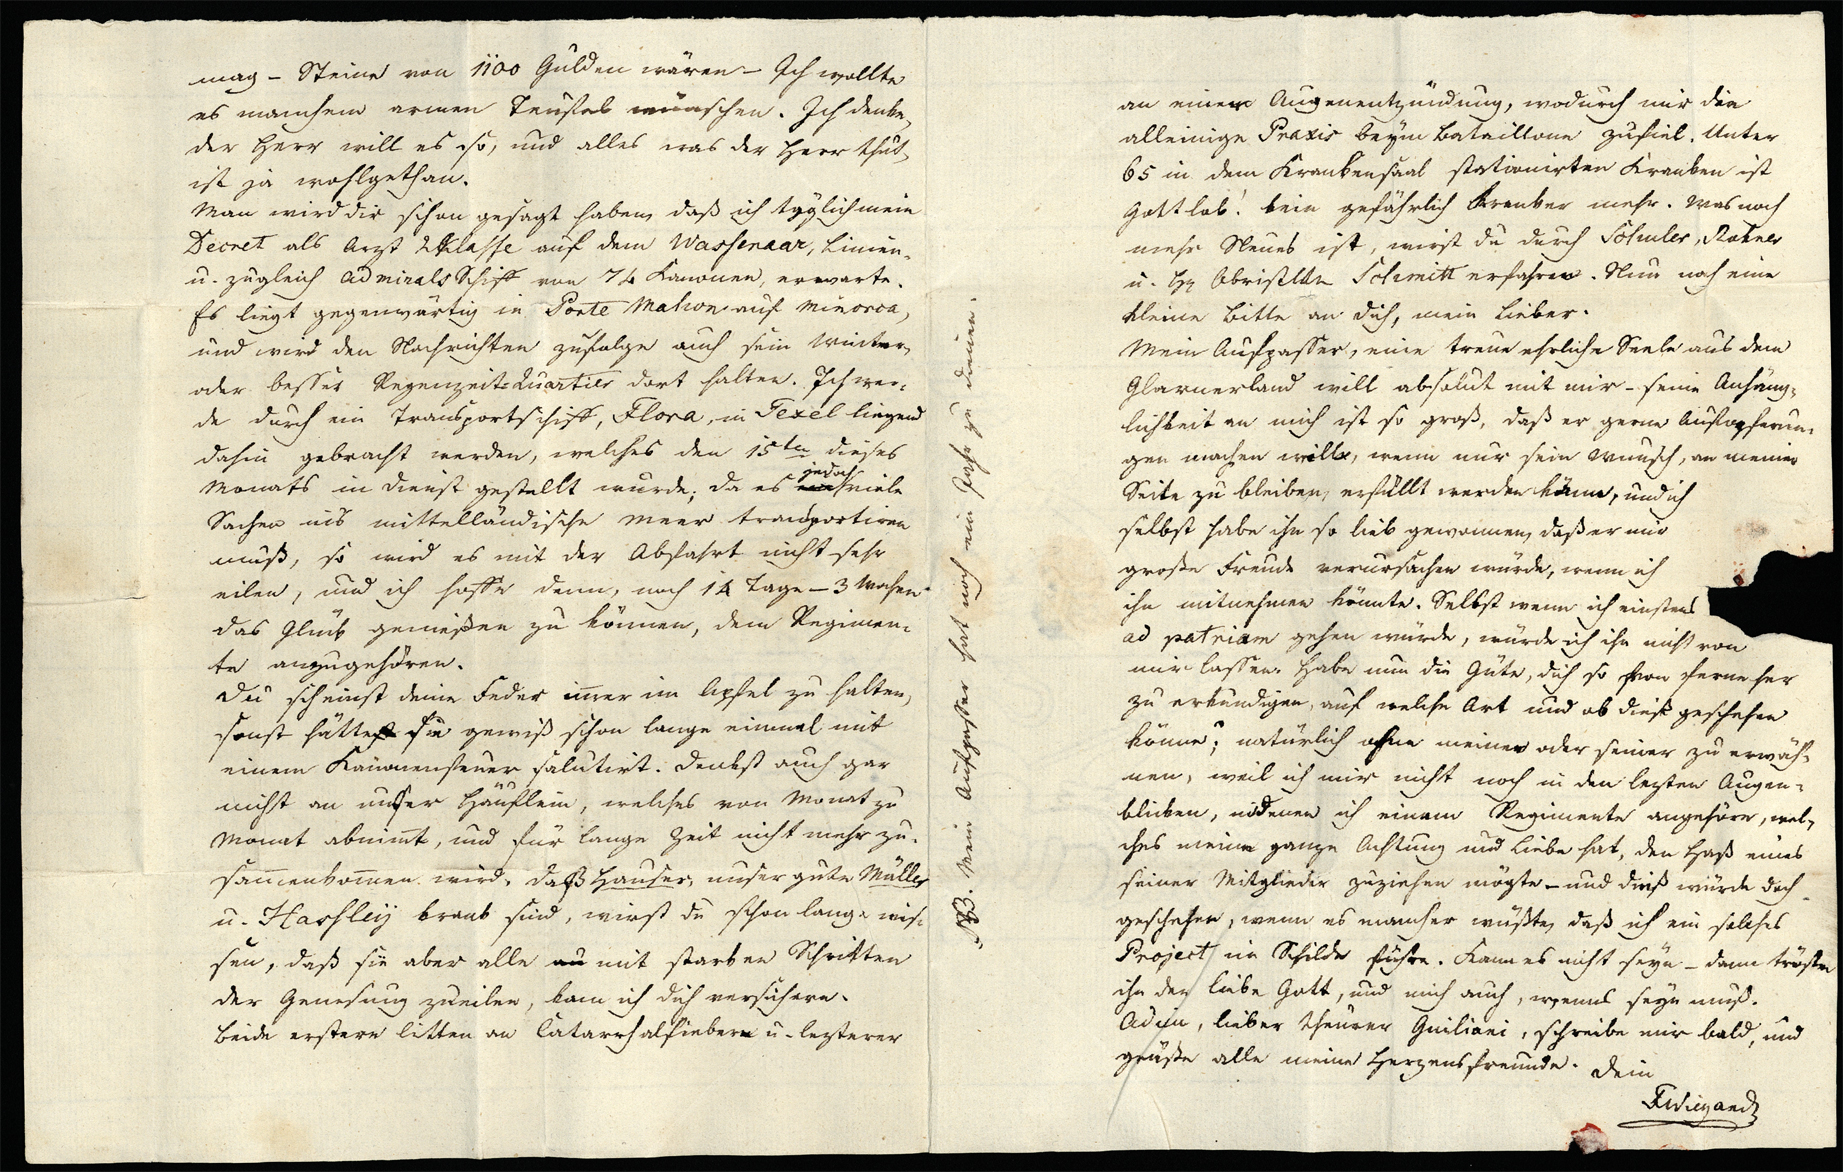 mag – Steine von 1100 Gulden wären – Ich wollte
es manchem armen Teufel wünschen. Ich denke,
der Herr will es so, und alles was der Herr thut,
ist ja wohlgethan.
Man wird dir schon gesagt haben, daß ich täglich mein
Decret als Arzt 2. Klasse auf dem Wassenaar, Linien-
u. zugleich Admirals Schiff von 74 Kanonen, erwarte.
Es liegt gegenwärtig in Porte Mahon auf Minorca,
und wird den Nachrichten zufolge auch sein Winter,
oder besser Regenzeit-Quartier dort halten. Ich wer-
de durch ein Transportschiff, Flora, in Texel liegend
dahin gebracht werden, welches den 15ten dieses
Monats in Dienst gestellt wurde; da es jedoch viele
Sachen ins mittelländische Meer transportiren
muß, so wird es mit der Abfahrt nicht sehr
eilen, und ich hoffe denn, noch 14 Tage – 3 Wochen
das Glück genießen zu können, dem Regimen-
te anzugehören.
Du scheinst deine Feder im̅er im Apfel zu halten,
sonst hättest sie gewiß schon lange einmal mit
einem Kanonenfeuer salutirt. Denkst auch gar
nicht an unser Häuflein, welches von Monat zu
Monat abnim̅t, und für lange Zeit nicht mehr zu-
sam̅enkom̅en wird. Daß Hauser, unser gute Müller
u. Hassleÿ krank sind, wirst du schon lange wis-
sen, daß sie aber alle mit starken Schritten
der Genesung zueilen, kann ich dich versichern.
Beide erstern litten an Catarrhalfiebern u. lezterer
NB. Mein Aufpasser hat noch ein Jahr zu dienen.
an einer Augenentzündung, wodurch mir die
alleinige Praxis beym Bataillone zufiel. Unter
65 in dem Krankensaal stationirten Kranken ist
Gott lob! kein gefährlich Kranker mehr. Was noch
mehr Neues ist, wirst du durch Schuler, Rohner
u. Hr Obristltn Schmitt erfahren. Nun noch eine
kleine Bitte an dich, mein Lieber.
Mein Aufpasser, eine treue ehrliche Seele aus dem
Glarnerland will absolut mit mir – seine Anhäng-
lichkeit an mich ist so groß, daß er gerne Aufopferun-
gen machen will, wenn nur sein Wunsch, an meiner
Seite zu bleiben, erfüllt werden kann, und ich
selbst habe ihn so lieb gewonnen, daß er mir
große Freude verursachen würde, wenn ich
ihn mitnehmen könnte. Selbst wenn ich einstens
ad patriam gehen würde, würde ich ihn nicht von
mir lassen. Habe nun die Güte, dich so von ferne her
zu erkundigen, auf welche Art und ob dieß geschehen
könne; natürlich ohne meiner oder seiner zu erwäh-
nen, weil ich mir nicht noch in den lezten Augen-
blicken, in denen ich einem Regimente angehöre, wel-
ches meine ganze Achtung und Liebe hat, den Haß eines
seiner Mitglieder zuziehen mögte – und dieß würde doch
geschehen, wenn es mancher wüßte, daß ich ein solches
Project im Schilde führe. Kann es nicht seyn – dann tröste
ihn der liebe Gott, und mich auch, wenns seyn muß.
Adieu, lieber theurer Guiliani, schreibe mir bald, und
grüße alle meine Herzensfreunde. Dein
FWiegand